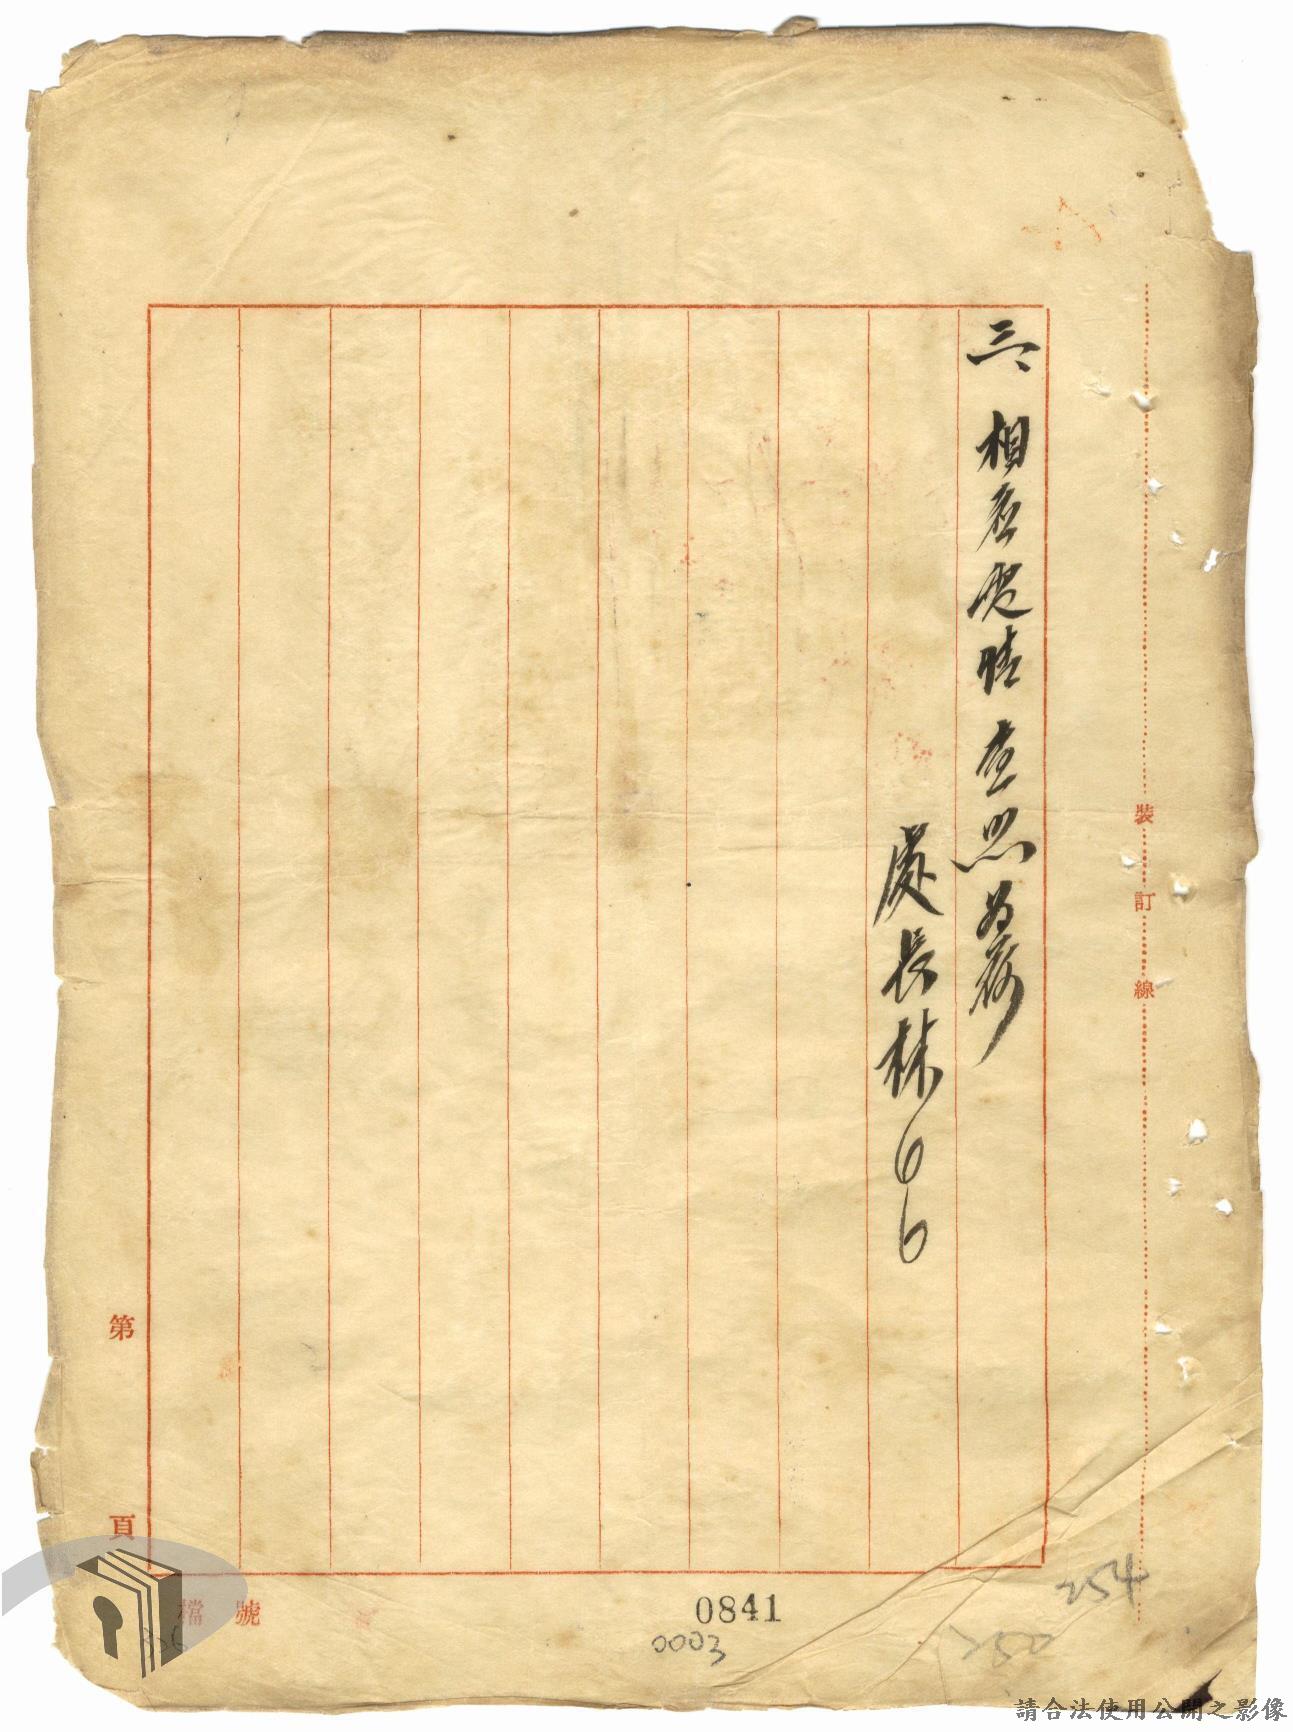 三、相應復請 查照為荷
處長林〇〇
裝訂線
第 頁
檔號
0841
0003
254
250
請合法使用公開之影像